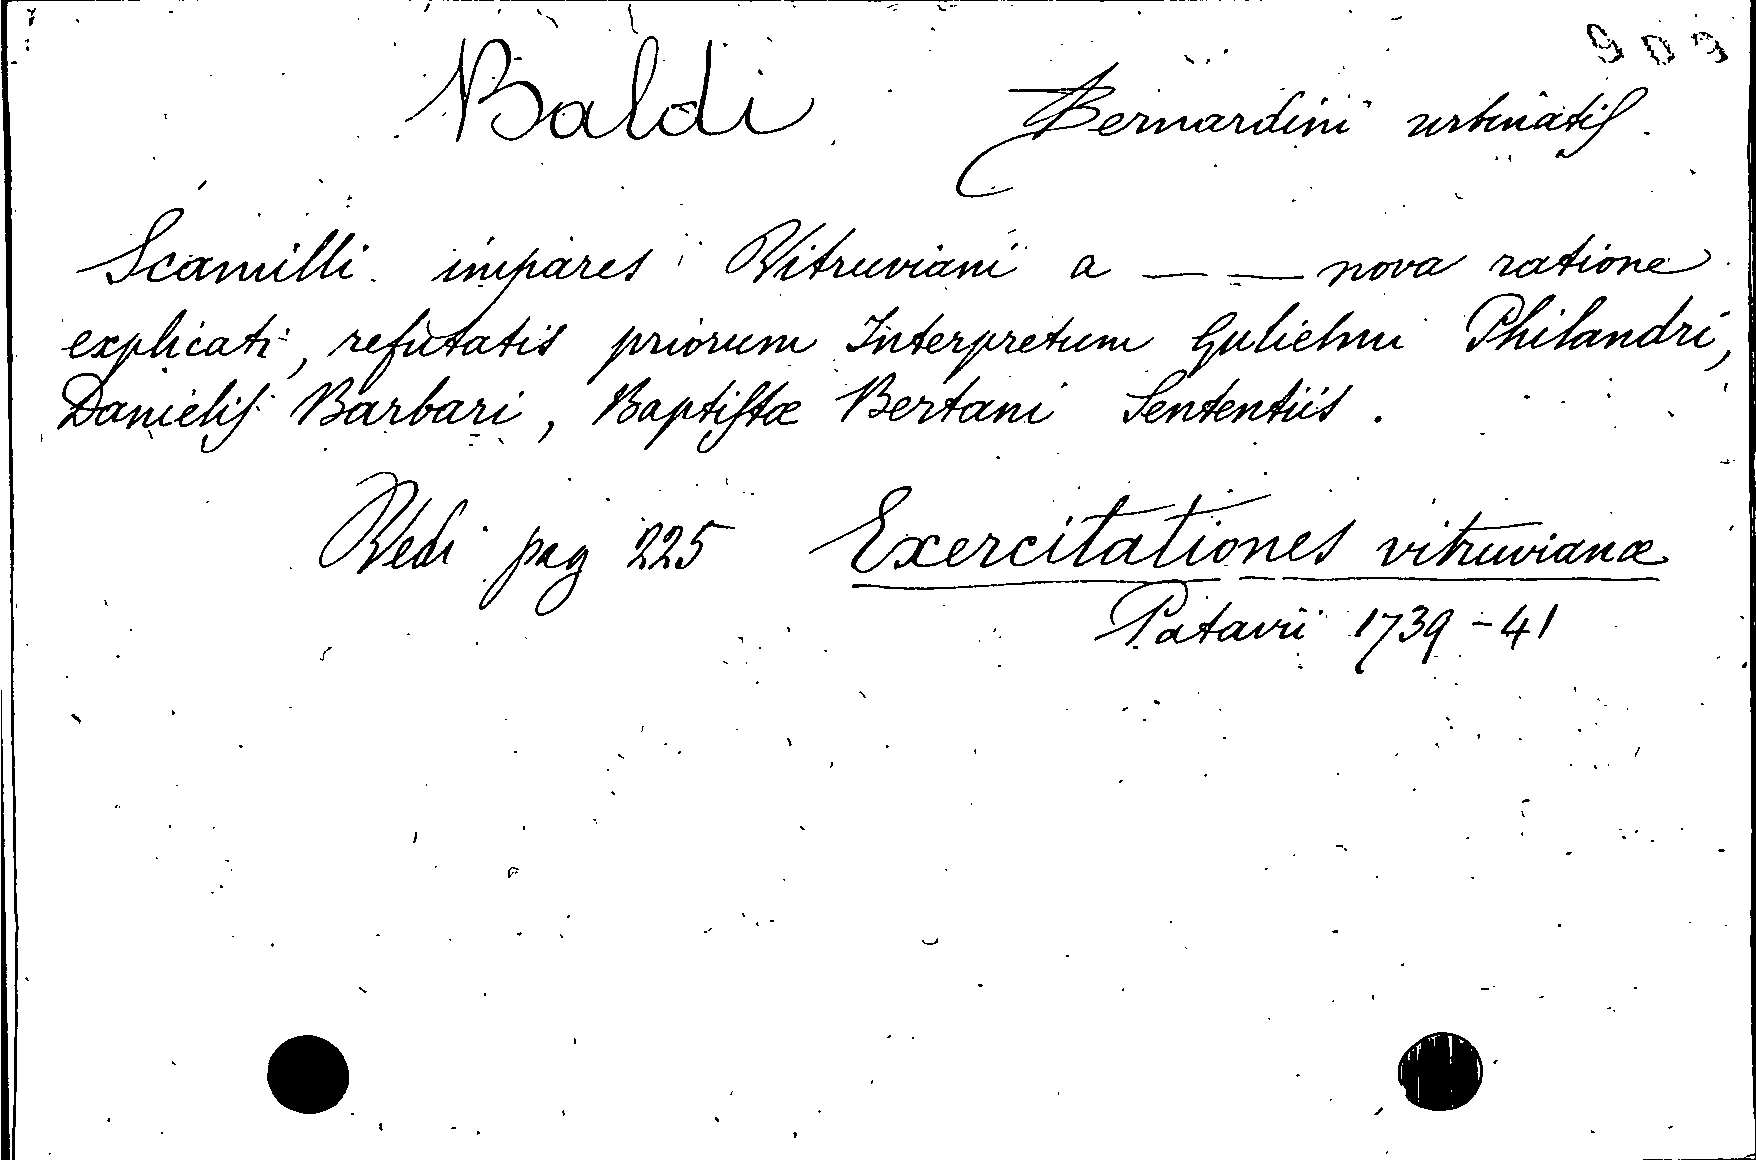 909
Baldi Bernardini urbinatiſ.
Scamilli impares Vitruviani a — — nova ratione
explicati, refutatis priorum Interpretum Gulielmi Philandri,
Danieliſ Barbari, Baptiſtæ Bertani Sententiis.
Vedi pag 225 Exercitationes vitruvianæ
Patavii 1739-41